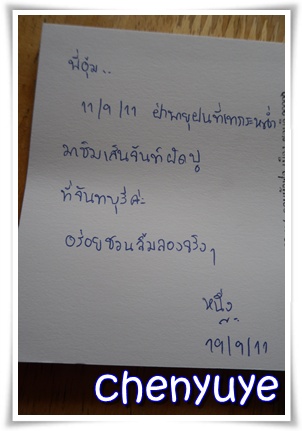 พี่อุ้ม..
11/9/11 ฝ่าพายุฝนที่เทกระหน่ำ
มาชิมเส้นจันท์ผัดปู
ที่จันทบุรีค่ะ
อร่อยชวนลิ้มลองจริงๆ
หนึ่ง
19/9/11
chenyuye